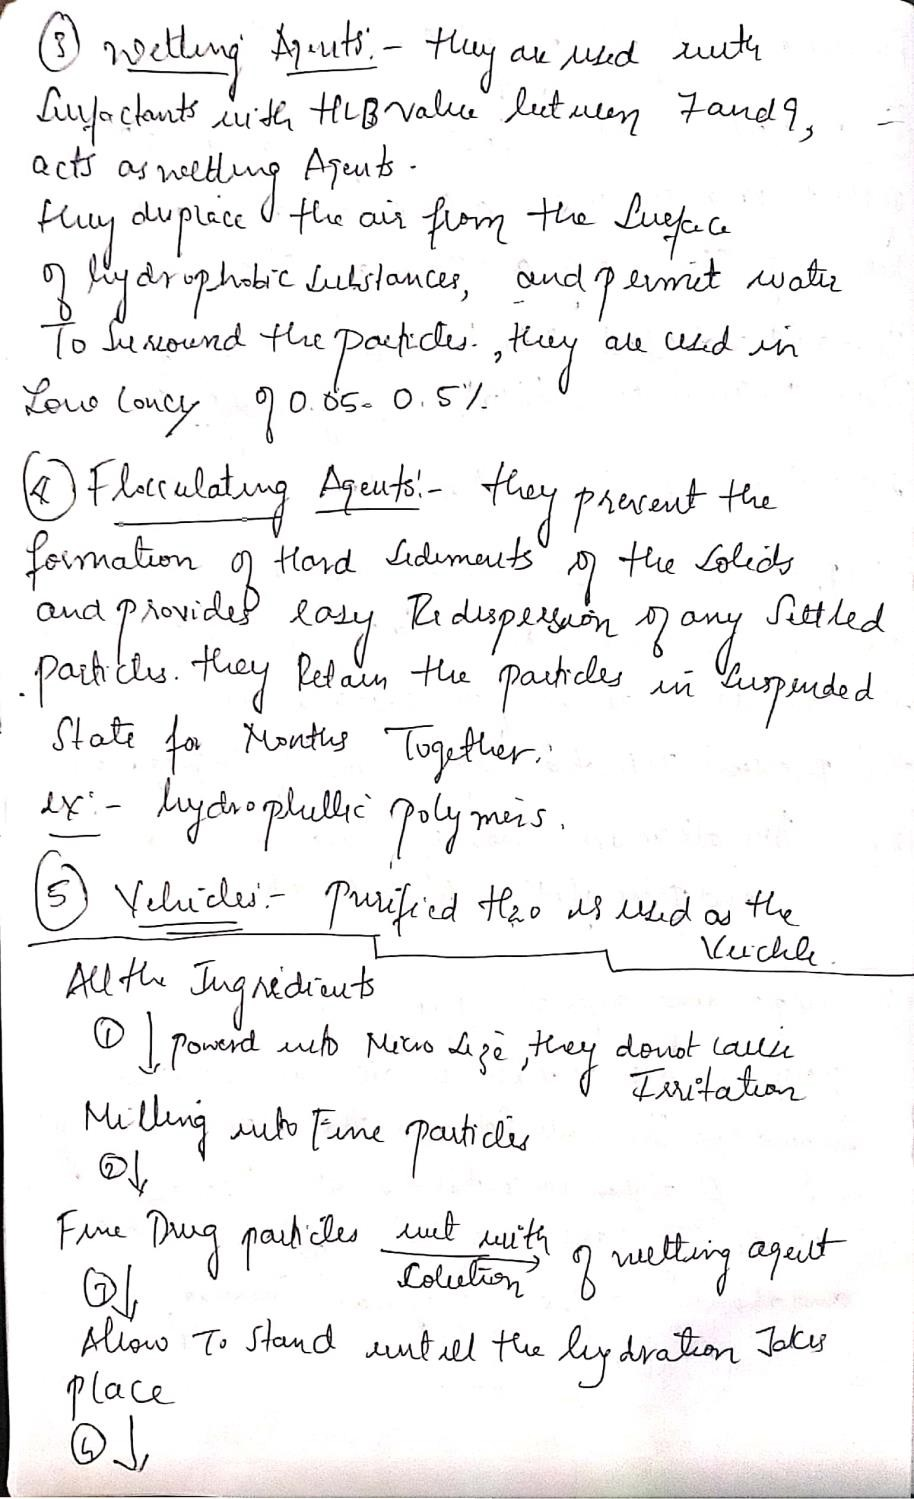 ③ Wetting Agents:- they are used with
Surfactants with HLB value between 7 and 9,
acts as wetting Agents.
they displace the air from the Surface
of hydrophobic substances, and permit water
To Surround the particles., they are used in
Low Concy of 0.05- 0.5%.
④ Flocculating Agents:- they prevent the
formation of Hard Sediments of the Solids
and provides easy Redispersion of any Settled
particles. they Retain the particles in Suspended
State for Months Together.
ex:- hydrophillic polymers.
⑤ Vehicles:- Purified H2O is used as the
Veichle.
All the Ingredients
① ↓ Powerd into Micro Size, they donot cause
Irritation
Milling into Fine particles
② ↓
Fine Drug particles wet with solution → of wetting agent
③ ↓
Allow To Stand untill the hydration Takes
place
④ ↓